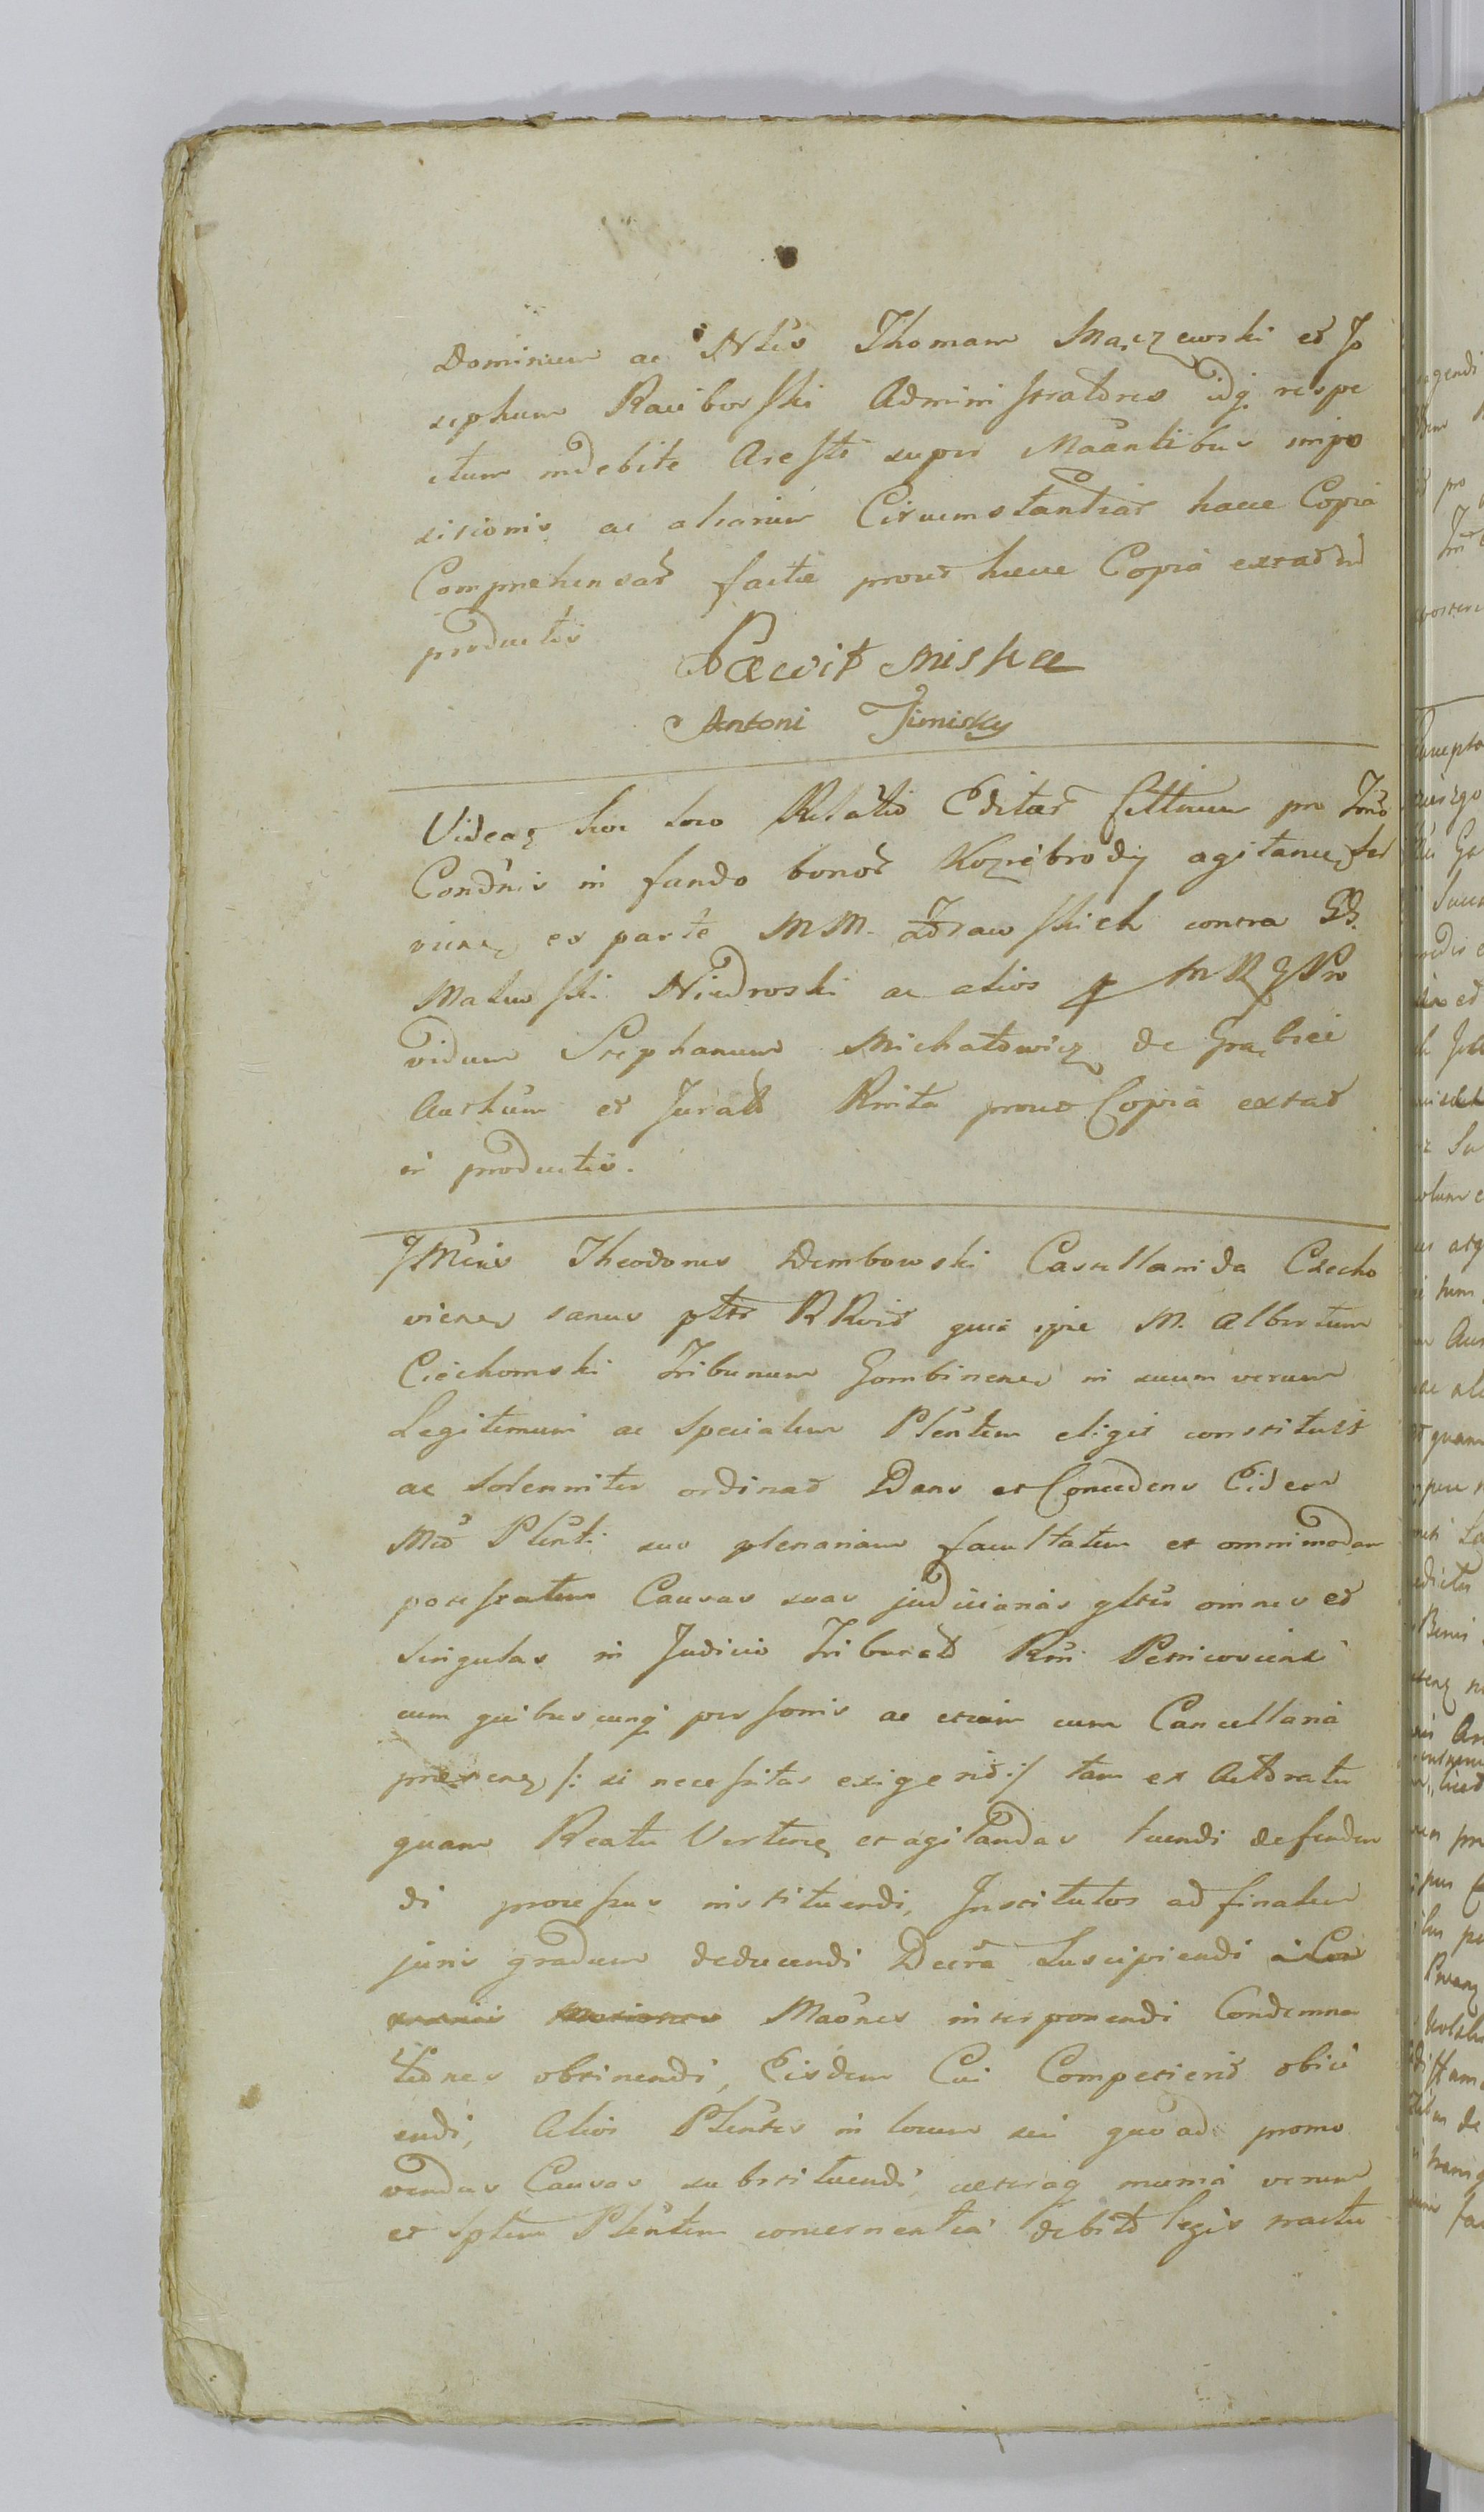 Dominum ac Nles Thomam Mączewski et Jo
sephum Raciborski Administratores idq respe
ctum indebite Aresti super Maantibus impo
sicionis ac aliarum Circumstantiar hacce Copia
Comprehensar factae prout haece Copia extradd
productis
Dawit Miska
Antoni Zimisky
Videas hoc loco Relatio Editae Cittnum pro Tmo
Condnis in fundo bonor Koziebrody agitanc fer
viens ex parte MM. Zdrawskich contra GG.
Maluski Niedroski ac alios p MRJ Pro
vidum Stephanum Michałowicz de Grąbiec
Authum et Juratt Rnita prout Copia extad
in productis.
JMcus Theodorus Dembowski Castellanida Czecho
viens sanus ptts RRvit quia ipse M. Albertum
Ciechomski Tribunum Gombinens in suum verum
Legitimum ac specialem Plentem eligit constituit
ac solenniter ordinat Dans et Concedens Eidem
Mco Plenti suo plenariam facultatem et omnimodam
potestatem Causas suas judiciarias qltis omnes et
singulas in Judicio Tribunatt Rni Petricoviens
cum quibuscunq personis ac etiam cum Cancellaria
presens /: si necessitas exigerid :/ tam ex Actoratu
quam Reatu Vertens et agitandas tuendi defenden
di processus instituendi, Institutos ad finalem
juris gradum deducendi Decra Suscipiendi
Maones interponendi Condemna
tiones obtinendi, Eisdem Cui Competierit obici
endi, Alios Plentes in locum sui quo ad promo
vendas Causas substituendi, caeteraq munia verum
et Spttem Plentem concernentia debito legis tractu